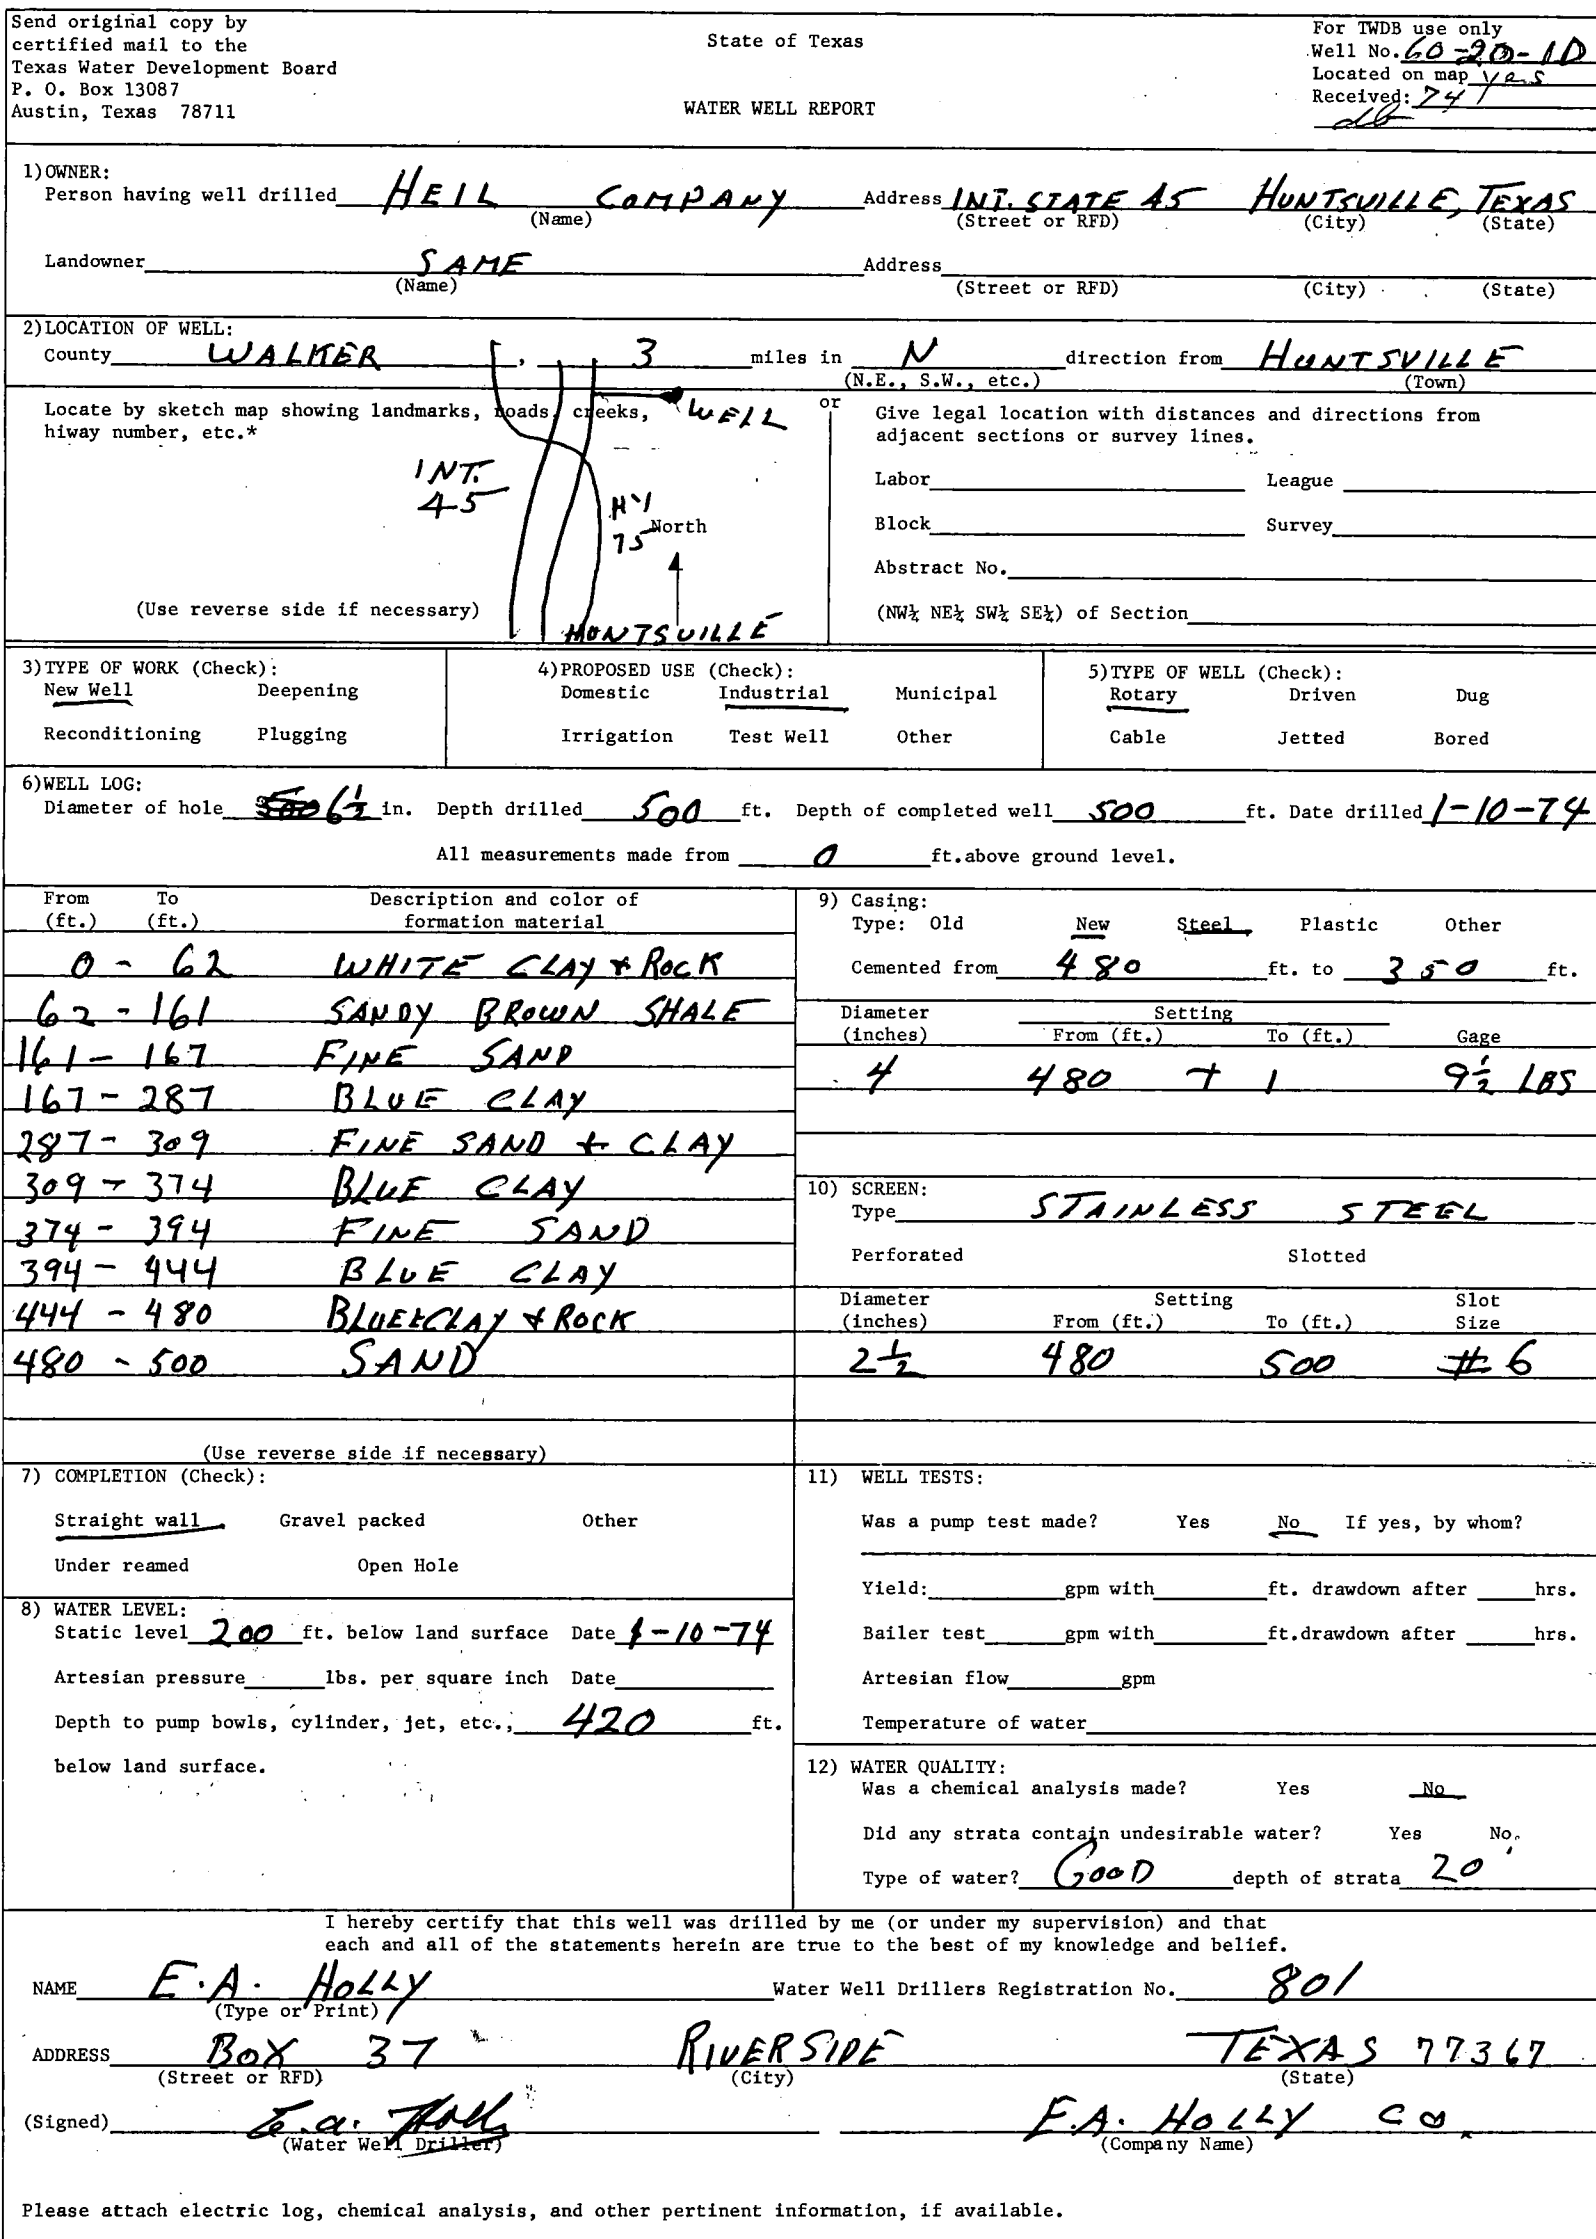 Send original copy by
certified mail to the
Texas Water Development Board
P. O. Box 13087
Austin, Texas 78711
State of Texas
WATER WELL REPORT
For TWDB use only
Well No. 60-20-1D
Located on map yes
Received: 74
db
1)OWNER:
Person having well drilled HEIL COMPANY Address INT. STATE 45 HUNTSVILLE, TEXAS
(Name) (Street or RFD) (City) (State)
Landowner SAME Address
(Name) (Street or RFD) (City) (State)
2)LOCATION OF WELL:
County WALKER, 3 miles in N direction from HUNTSVILLE
(N.E., S.W., etc.) (Town)
Locate by sketch map showing landmarks, roads, creeks,
hiway number, etc.*
WELL
INT.
45
HY
75
North
(Use reverse side if necessary)
HUNTSVILLE
or
Give legal location with distances and directions from
adjacent sections or survey lines.
Labor League
Block Survey
Abstract No.
(NW¼ NE¼ SW¼ SE¼) of Section
3)TYPE OF WORK (Check):
New Well Deepening
Reconditioning Plugging
4)PROPOSED USE (Check):
Domestic Industrial Municipal
Irrigation Test Well Other
5)TYPE OF WELL (Check):
Rotary Driven Dug
Cable Jetted Bored
6)WELL LOG:
Diameter of hole 6½ in. Depth drilled 500 ft. Depth of completed well 500 ft. Date drilled 1-10-74
All measurements made from 0 ft.above ground level.
From To Description and color of
(ft.) (ft.) formation material
0 - 62 WHITE CLAY + ROCK
62 - 161 SANDY BROWN SHALE
161 - 167 FINE SAND
167 - 287 BLUE CLAY
287 - 309 FINE SAND + CLAY
309 - 374 BLUE CLAY
374 - 394 FINE SAND
394 - 444 BLUE CLAY
444 - 480 BLUE CLAY + ROCK
480 - 500 SAND
(Use reverse side if necessary)
9) Casing:
Type: Old New Steel Plastic Other
Cemented from 480 ft. to 350 ft.
Diameter Setting
(inches) From (ft.) To (ft.) Gage
4 480 + 1 9½ LBS
10) SCREEN:
Type STAINLESS STEEL
Perforated Slotted
Diameter Setting Slot
(inches) From (ft.) To (ft.) Size
2½ 480 500 # 6
7) COMPLETION (Check):
Straight wall Gravel packed Other
Under reamed Open Hole
8) WATER LEVEL:
Static level 200 ft. below land surface Date 1-10-74
Artesian pressure lbs. per square inch Date
Depth to pump bowls, cylinder, jet, etc., 420 ft.
below land surface.
11) WELL TESTS:
Was a pump test made? Yes No If yes, by whom?
Yield: gpm with ft. drawdown after hrs.
Bailer test gpm with ft.drawdown after hrs.
Artesian flow gpm
Temperature of water
12) WATER QUALITY:
Was a chemical analysis made? Yes No
Did any strata contain undesirable water? Yes No
Type of water? GOOD depth of strata 20'
I hereby certify that this well was drilled by me (or under my supervision) and that
each and all of the statements herein are true to the best of my knowledge and belief.
NAME E.A. HOLLY Water Well Drillers Registration No. 801
(Type or Print)
ADDRESS BOX 37 RIVERSIDE TEXAS 77367
(Street or RFD) (City) (State)
(Signed) E.A. Holly E.A. HOLLY CO.
(Water Well Driller) (Company Name)
Please attach electric log, chemical analysis, and other pertinent information, if available.